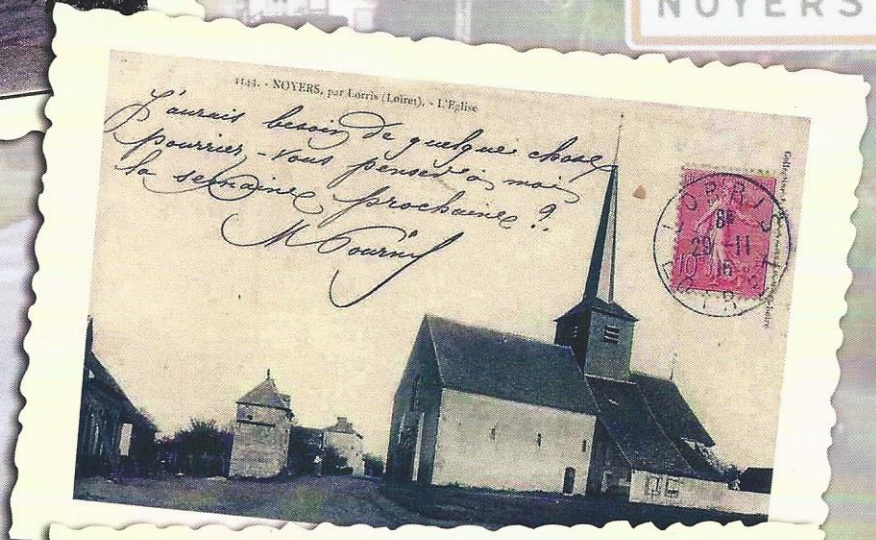 NOYERS
1144. - NOYERS, par Lorris (Loiret). - L'Eglise
J'aurais besoin de quelque chose
pourriez-vous penser à moi
la semaine prochaine ?
LORRIS
29 -11
LOIRET
10